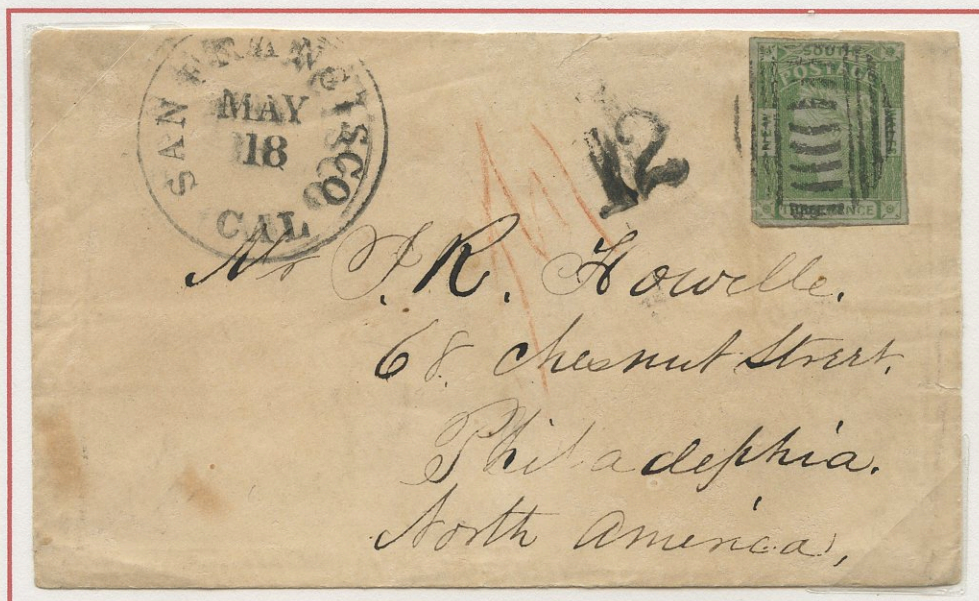 SAN FRANCISCO
MAY
18
CAL
12
SOUTH
POSTAGE
NEW
WALES
THREE PENCE
Mr J. R. Howelle.
68. Chesnut Street.
Philadephia.
North America,